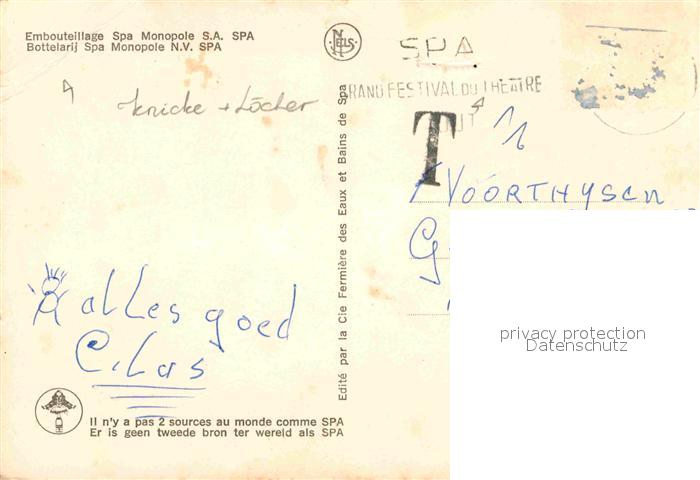 Embouteillage Spa Monopole S.A. SPA
Bottelarij Spa Monopole N.V. SPA
NELS
SPA
RAND FESTIVAL DU THEATRE
T
knicke + Löcher
VOORTHYSEN
G
Edité par la Cie Fermière des Eaux et Bains de Spa
alles goed
C. Las
privacy protection
Datenschutz
Il n'y a pas 2 sources au monde comme SPA
Er is geen tweede bron ter wereld als SPA